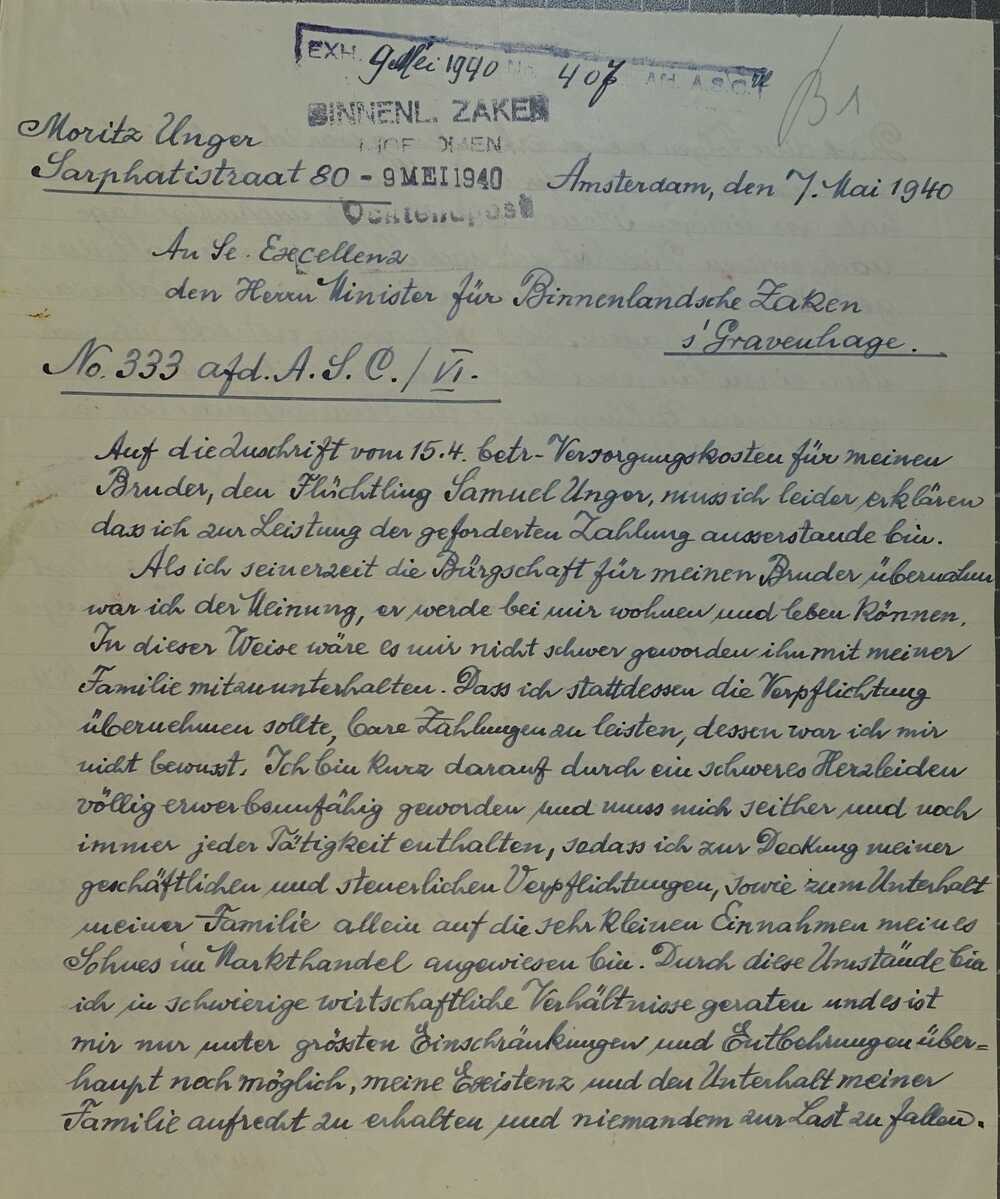 EXH. 9 Mei 1940 No. 407 AFD. A.S.C.
B 1
BINNENL. ZAKEN
Moritz Unger
Sarphatistraat 80 - 9 MEI 1940 Amsterdam, den 7. Mai 1940
Ochtendpost
An Se. Excellenz
den Herrn Minister für Binnenlandsche Zaken
s'Gravenhage.
No. 333 afd. A. S. C. / VI.
Auf die Zuschrift vom 15.4. betr- Versorgungskosten für meinen
Bruder, den Flüchtling Samuel Unger, muss ich leider erklären
dass ich zur Leistung der geforderten Zahlung ausserstande bin.
Als ich seinerzeit die Bürgschaft für meinen Bruder übernahm
war ich der Meinung, er werde bei mir wohnen und leben können.
In dieser Weise wäre es mir nicht schwer geworden ihn mit meiner
Familie mitzuunterhalten. Dass ich stattdessen die Verpflichtung
übernehmen sollte, bare Zahlungen zu leisten, dessen war ich mir
nicht bewusst. Ich bin kurz darauf durch ein schweres Herzleiden
völlig erwerbsunfähig geworden und muss mich seither und noch
immer jeder Tätigkeit enthalten, sodass ich zur Deckung meiner
geschäftlichen und steuerlichen Verpflichtungen, sowie zum Unterhalt
meiner Familie allein auf die sehr kleinen Einnahmen meines
Sohnes im Markthandel angewiesen bin. Durch diese Umstände bin
ich in schwierige wirtschaftliche Verhältnisse geraten und es ist
mir nur unter grössten Einschränkungen und Entbehrungen über=
haupt noch möglich, meine Existenz und den Unterhalt meiner
Familie aufrecht zu erhalten und niemandem zur Last zu fallen.